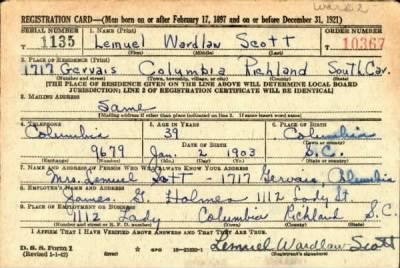 Ward 2
REGISTRATION CARD—(Men born on or after February 17, 1897 and on or before December 31, 1921)
SERIAL NUMBER 1. NAME (Print) ORDER NUMBER
1135 Lemuel Wardlaw Scott 10367
(First) (Middle) (Last)
2. PLACE OF RESIDENCE (Print)
1717 Gervais Columbia Richland South Car.
(Number and street) (Town, township, village, or city) (County) (State)
[THE PLACE OF RESIDENCE GIVEN ON THE LINE ABOVE WILL DETERMINE LOCAL BOARD
JURISDICTION; LINE 2 OF REGISTRATION CERTIFICATE WILL BE IDENTICAL]
3. MAILING ADDRESS
Same
4. TELEPHONE 5. AGE IN YEARS 6. PLACE OF BIRTH
Columbia 39 Columbia
DATE OF BIRTH (Town or county)
9679 Jan. 2 1903 S.C.
(Mo.) (Day) (Yr.) (State or country)
7. NAME AND ADDRESS OF PERSON WHO WILL ALWAYS KNOW YOUR ADDRESS
Mrs. Lemuel Scott - 1717 Gervais, Columbia
8. EMPLOYER'S NAME AND ADDRESS
James G. Holmes 1112 Lady St.
9. PLACE OF EMPLOYMENT OR BUSINESS
1112 Lady Columbia Richland S.C.
(Number and street or R. F. D. number) (Town) (County) (State)
I AFFIRM THAT I HAVE VERIFIED ABOVE ANSWERS AND THAT THEY ARE TRUE.
D. S. S. Form 1
(Revised 1-1-42) GPO Lemuel Wardlaw Scott
(Registrant's signature)